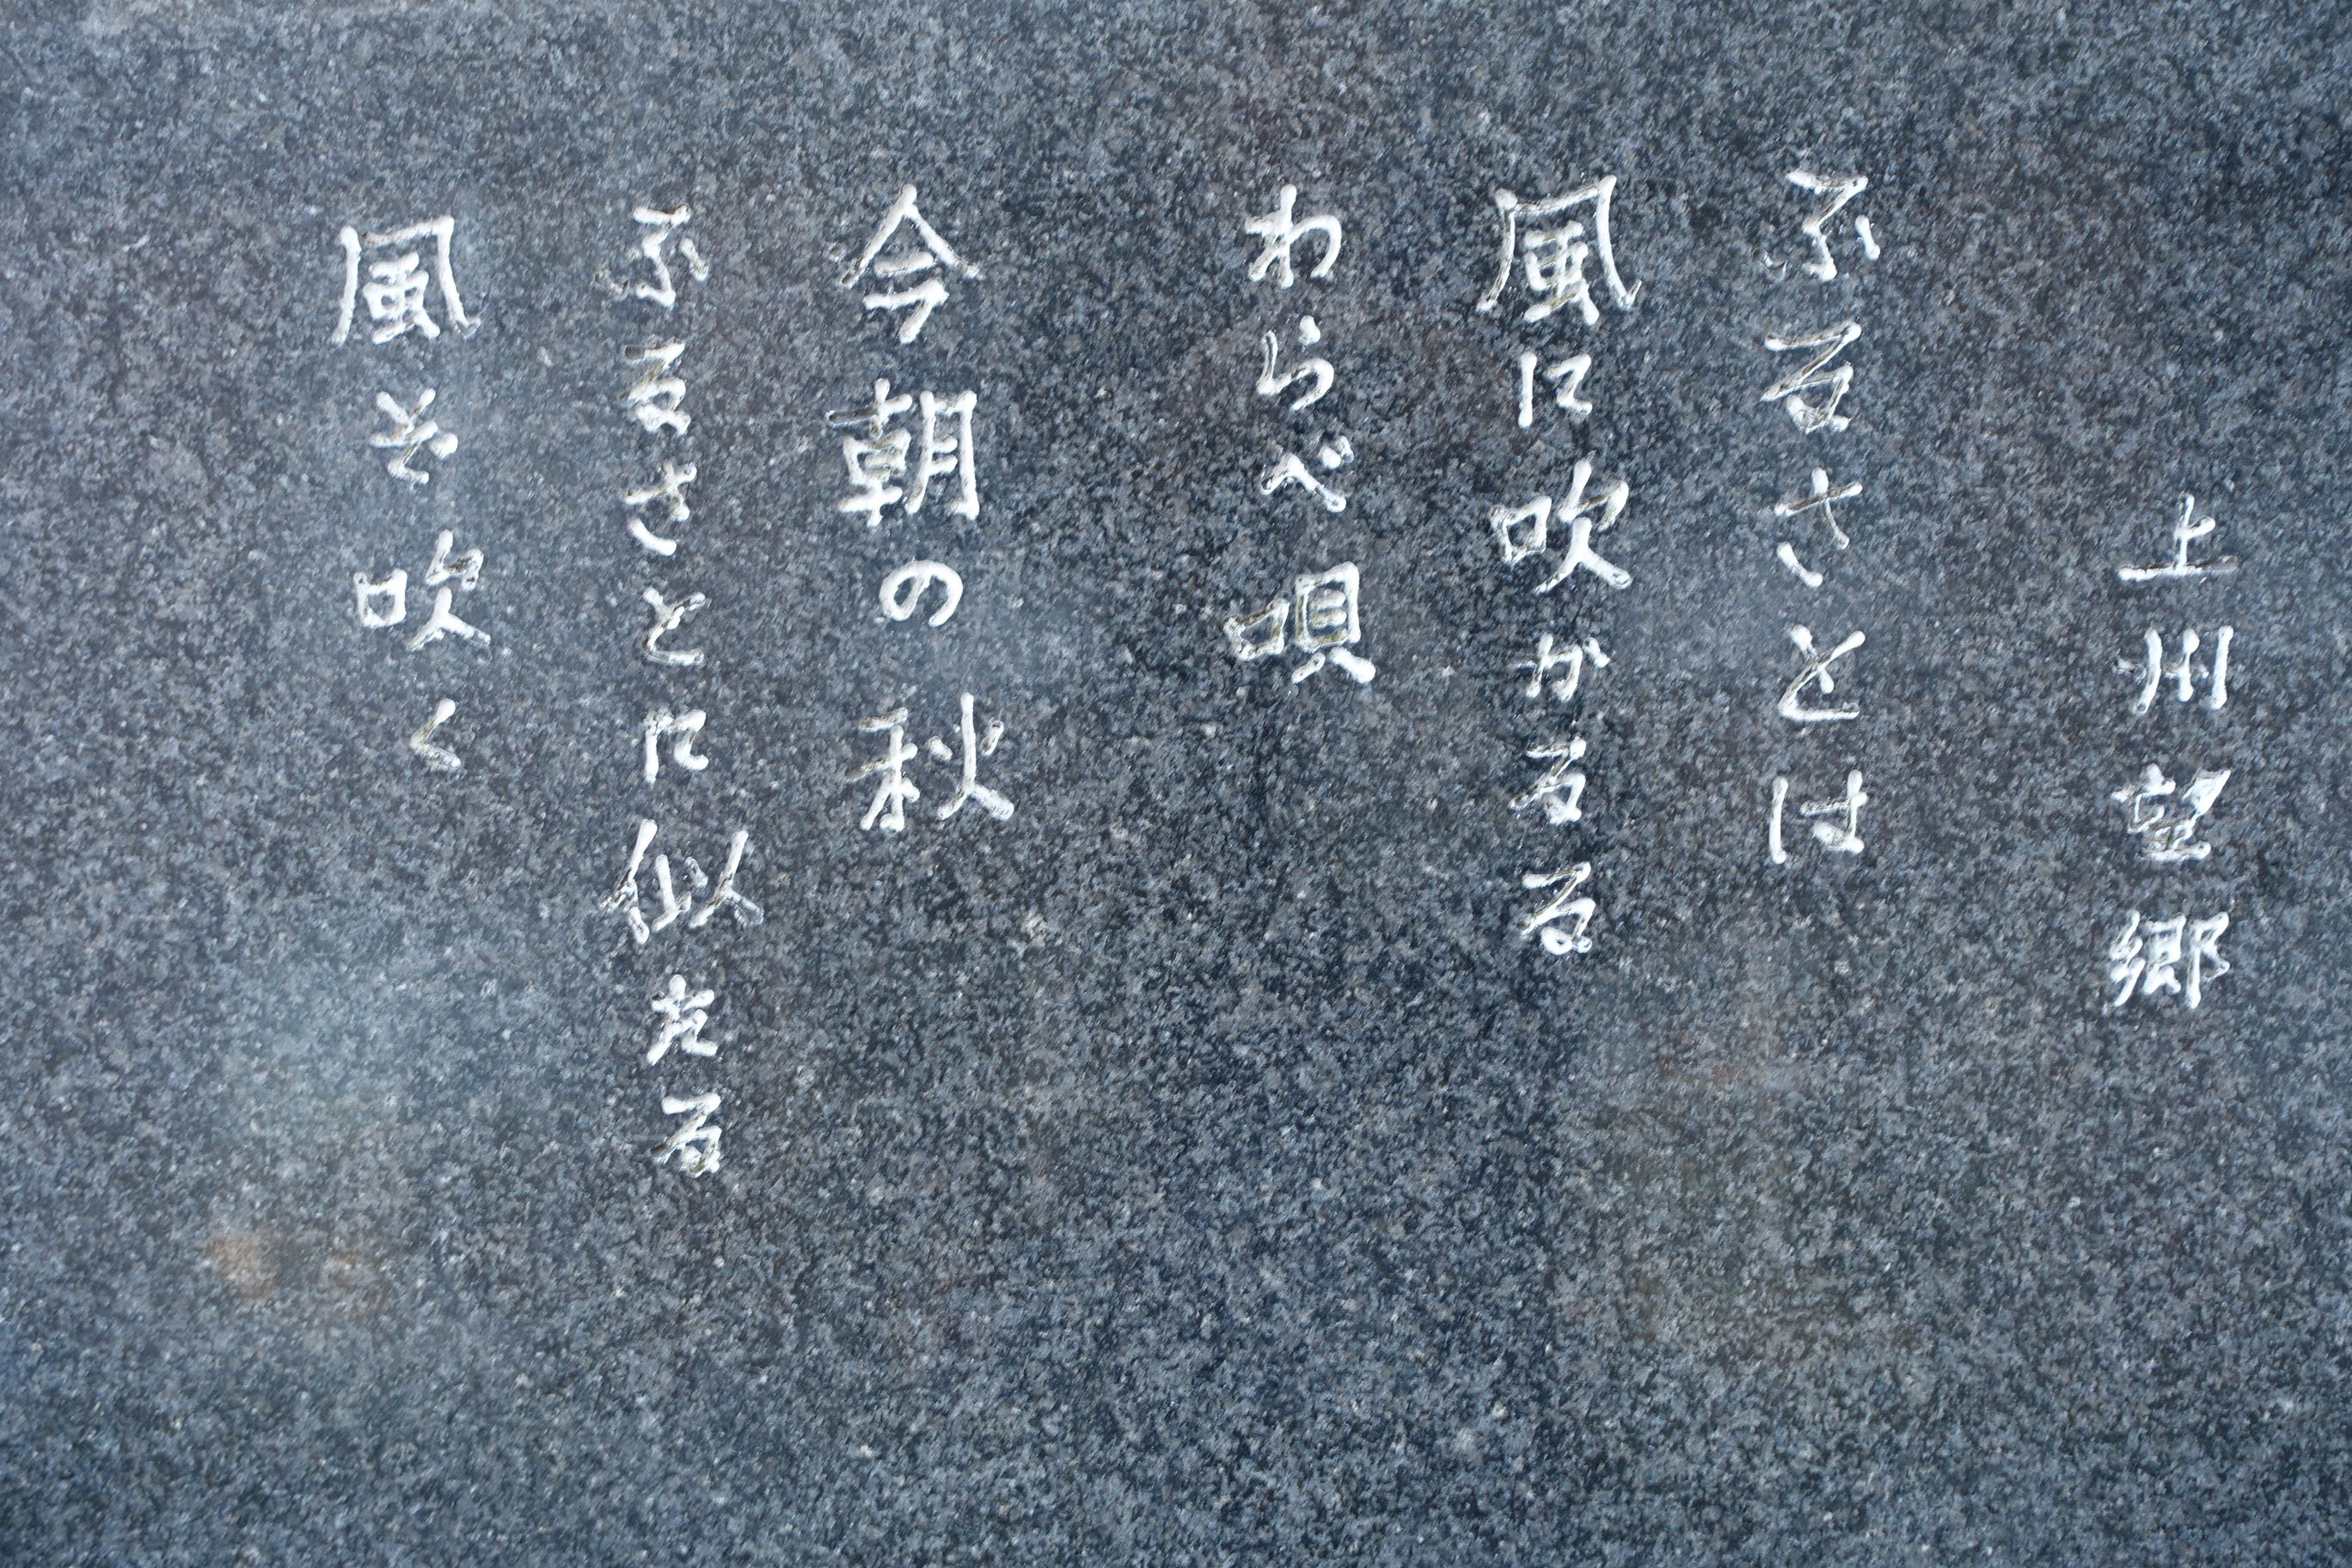 上州望郷
ふるさとは
風に吹かるる
わらべ唄
今朝の秋
ふるさとに似たる
風ぞ吹く